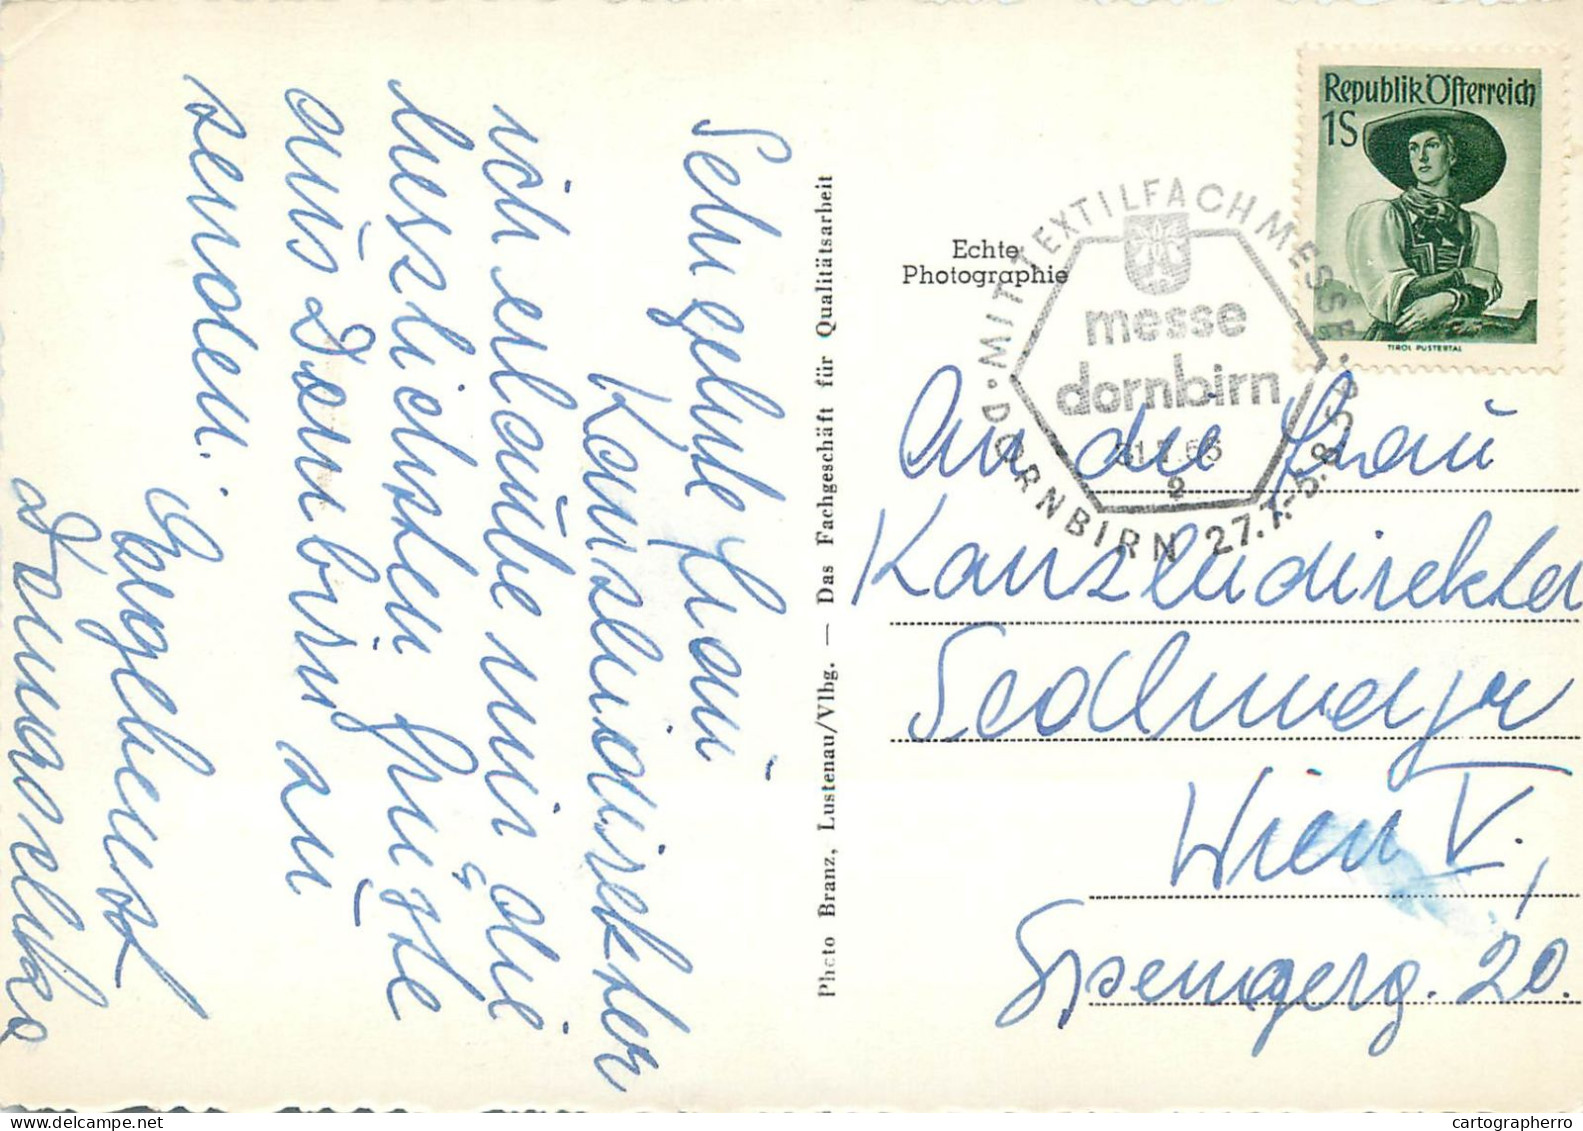 Sehr geehrte Frau
Kanzleidirektor
ich erlaube mir die
herzlichsten Grüße
aus Dornbirn zu
senden.
Ergebenst
Photo Branz, Lustenau/Vlbg. — Das Fachgeschäft für Qualitätsarbeit
Echte
Photographie
Republik Österreich
1S
TIROL PUSTERTAL
• MIT TEXTILFACHMESSE •
messe
dornbirn
DORNBIRN 27.7.-5.8.
An die Frau
Kanzleidirektor
Sedlmayer
Wien V.,
Spengerg. 20.
cartographerro